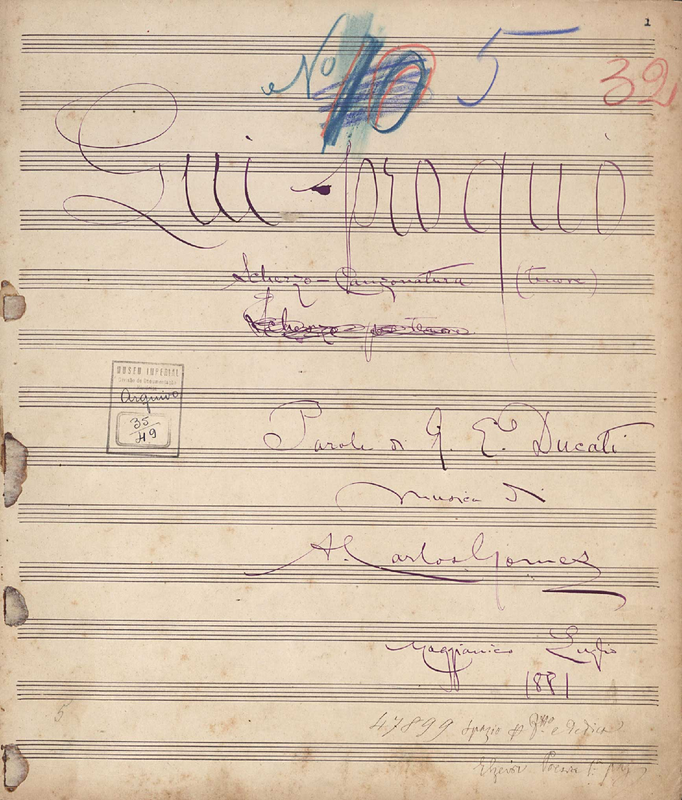 1
No 10 5 32
Qui-proquò
Scherzo-Canzonatura (tenore)
Scherzo per tenore
MUSEU IMPERIAL
Arquivo
35
49
Parole di E. Ducati
Musica di
A. Carlos Gomes
Maggianico Luglio
1881
5
47899 spazio e dedica